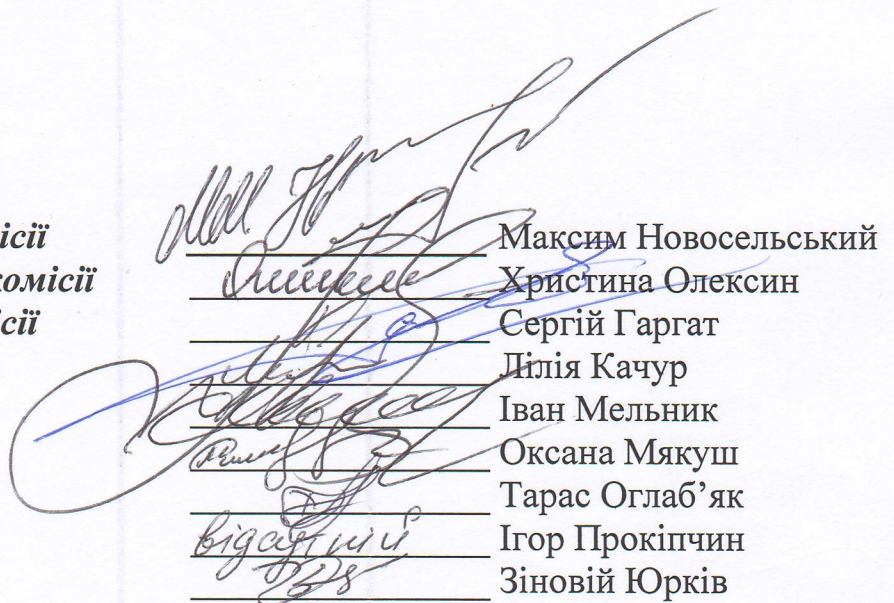 ісії Максим Новосельський
комісії Христина Олексин
ісії Сергій Гаргат
Лілія Качур
Іван Мельник
Оксана Мякуш
Тарас Оглаб’як
відсутній Ігор Прокіпчин
Зіновій Юрків